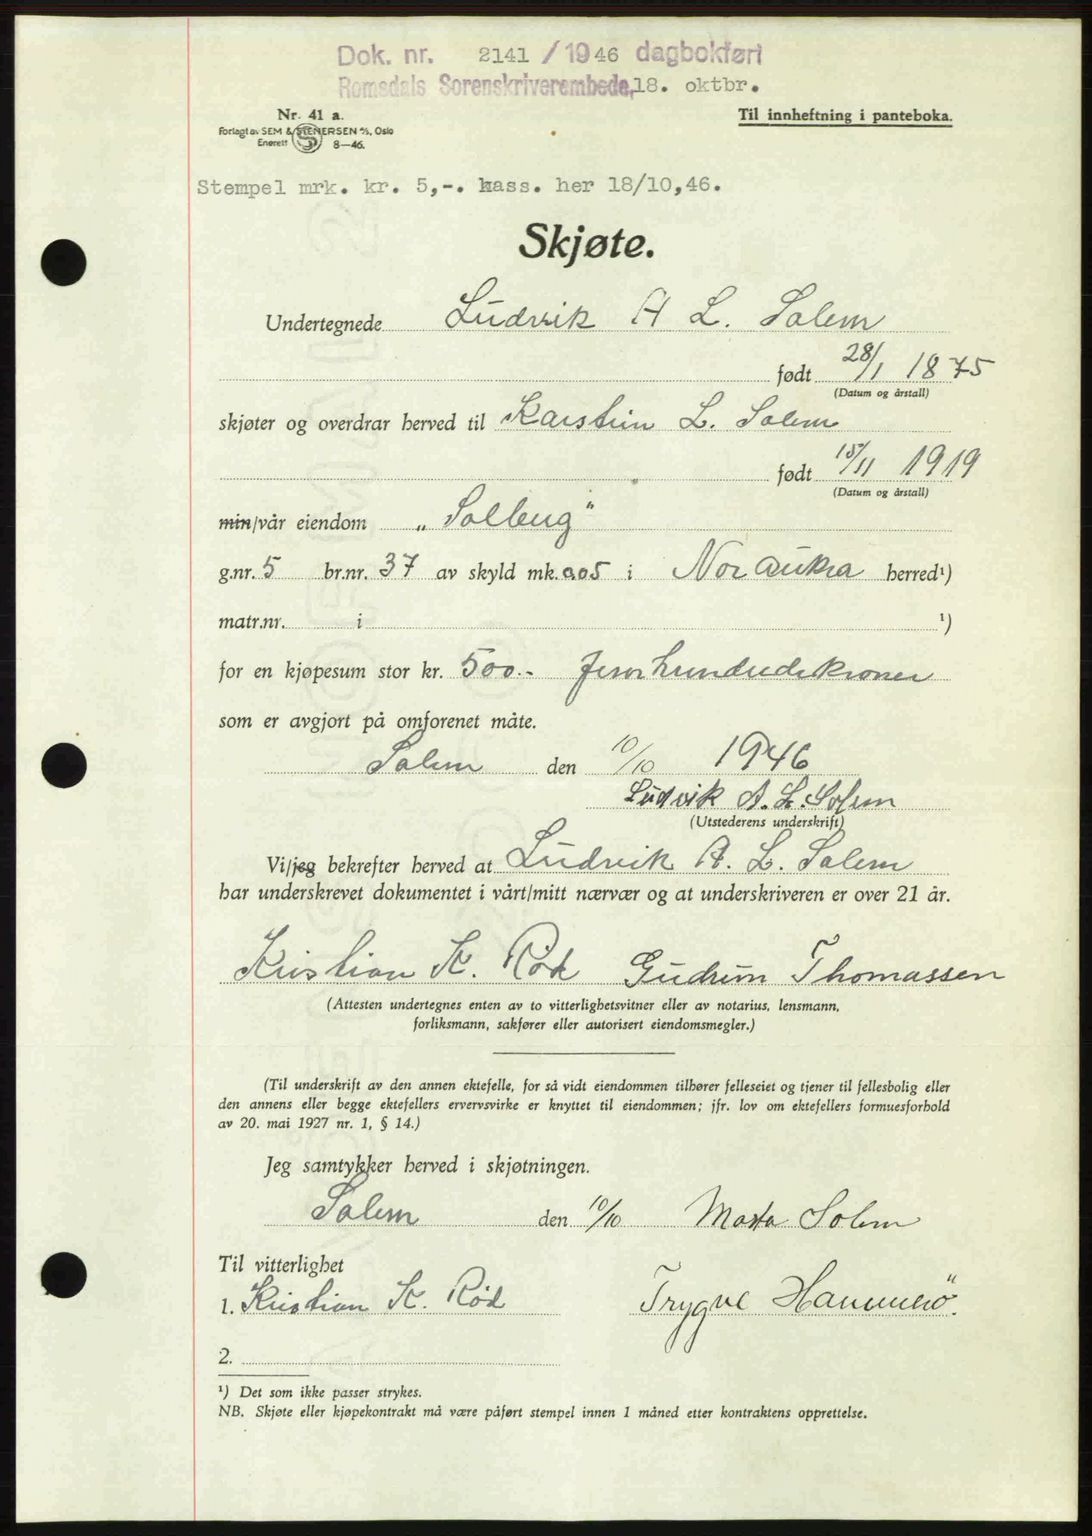 Dok. nr. 2141 / 1946 dagbokført
Romsdals Sorenskriverembede, 18. oktbr.
Nr. 41 a.
Forlagt av SEM & STENERSEN A/S, Oslo
Enerett 8-46.
Til innheftning i panteboka.
Stempel mrk. kr. 5,-. kass. her 18/10,46.
Skjøte.
Undertegnede Ludvik A L. Solem
født 28/1 1875
(Datum og årstall)
skjøter og overdrar herved til Karstein L. Solem
født 15/11 1919
(Datum og årstall)
min/vår eiendom „Solberg"
g.nr. 5 br.nr. 37 av skyld mk. 0.05 i Nor aukra herred¹)
matr.nr. i ¹)
for en kjøpesum stor kr. 500.- femhundredekroner
som er avgjort på omforenet måte.
Solem den 10/10 1946
Ludvik A. L. Solem
(Utstederens underskrift)
Vi/jeg bekrefter herved at Ludvik A. L. Solem
har underskrevet dokumentet i vårt/mitt nærvær og at underskriveren er over 21 år.
Kristian K. Rød Gudrun Thomassen
(Attesten undertegnes enten av to vitterlighetsvitner eller av notarius, lensmann,
forliksmann, sakfører eller autorisert eiendomsmegler.)
(Til underskrift av den annen ektefelle, for så vidt eiendommen tilhører felleseiet og tjener til fellesbolig eller
den annens eller begge ektefellers ervervsvirke er knyttet til eiendommen; jfr. lov om ektefellers formuesforhold
av 20. mai 1927 nr. 1, § 14.)
Jeg samtykker herved i skjøtningen.
Solem den 10/10 Marta Solem
Til vitterlighet
1. Kristian K. Rød Trygve Hammerö.
2.
¹) Det som ikke passer strykes.
NB. Skjøte eller kjøpekontrakt må være påført stempel innen 1 måned etter kontraktens opprettelse.